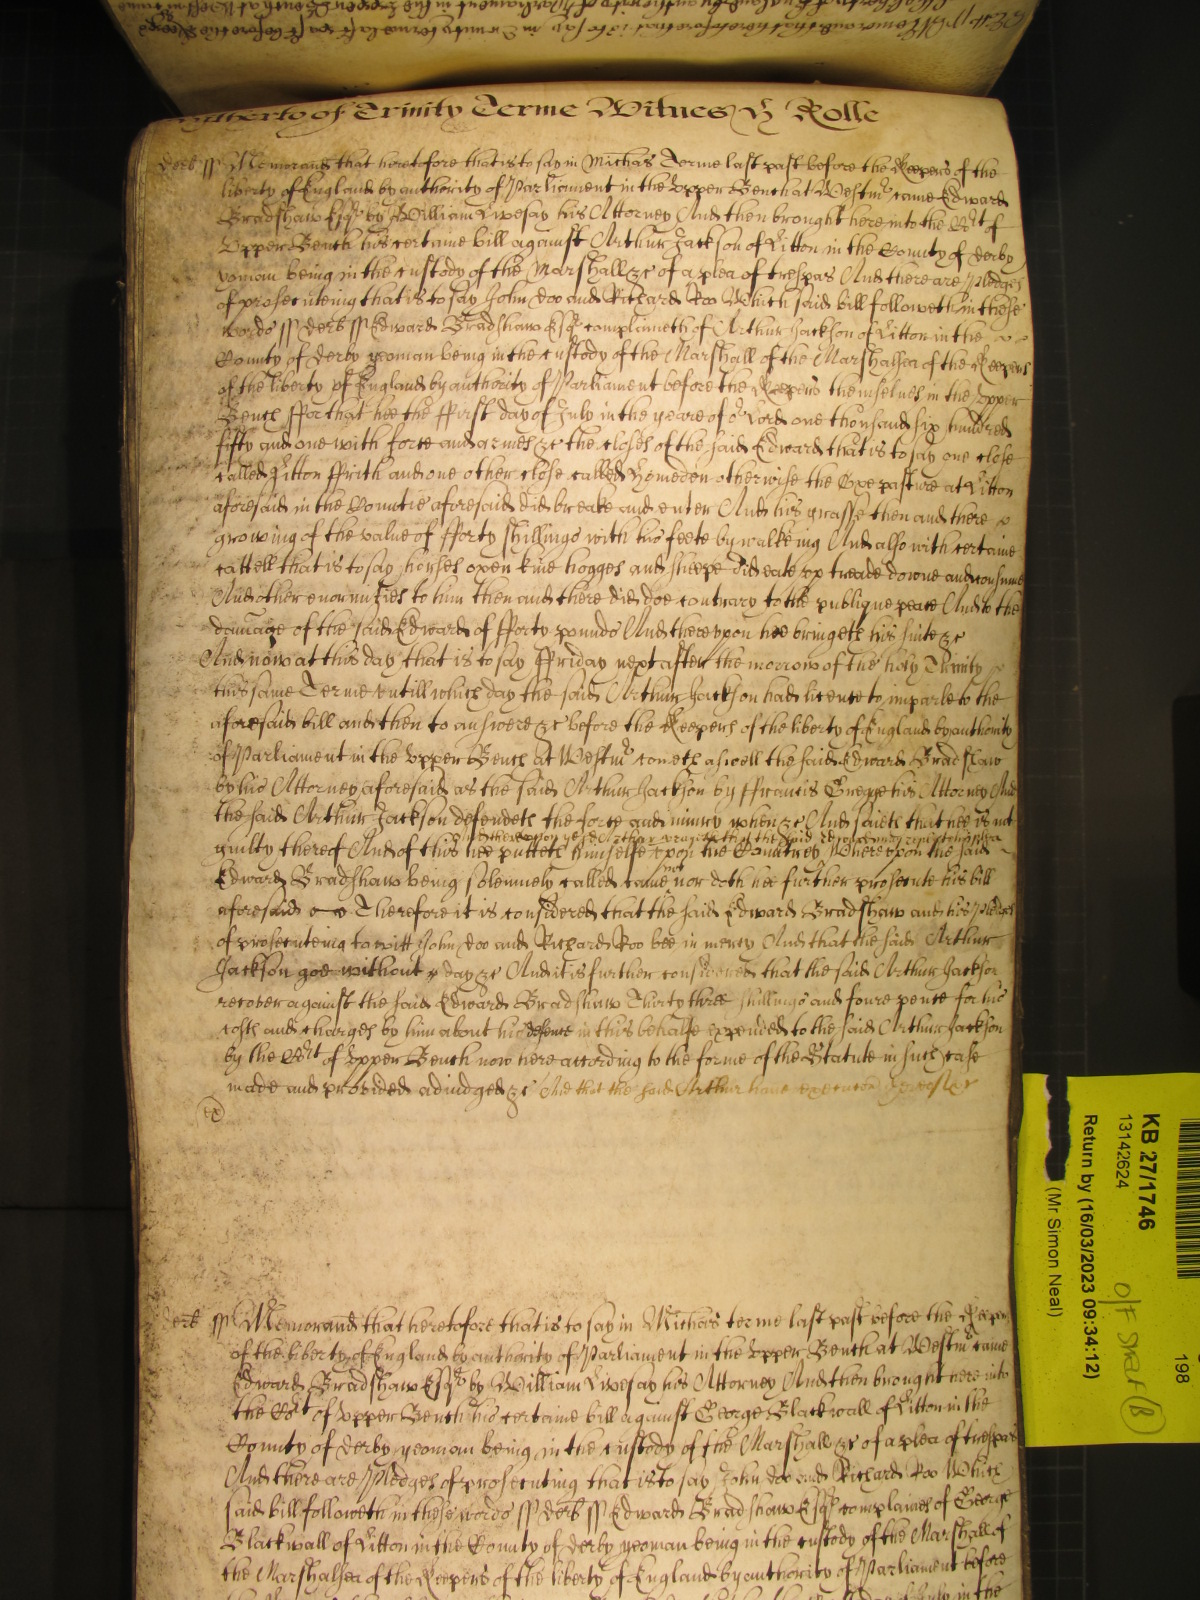 of Trinity Terme Witnes H Rolle
Derb ss Memorand that heretofore that is to say in Michas Terme last past before the Keepers of the
liberty of England by authority of Parliament in the Upper Bench at Westmr came Edward
Bradshaw Esqr by William Livesay his Attorney And then brought here into the Cort of
Upper Bench his certaine bill against Arthur Jackson of Litton in the County of Derby
yoman being in the custody of the Marshall &c of a plea of trespas And there are pledges
of prosecuteing that is to say John Doo and Richard Roo Which said bill followeth in these
words ss Derb ss Edward Bradshaw Esqr complaineth of Arthur Jackson of Litton in the
County of Derby yeoman being in the custody of the Marshall of the Marshalsea of the Keepers
of the liberty of England by authority of Parliament before the Keepers themselves in the Upper
Bench ffor that hee the ffirst day of July in the yeare of or Lord one thousand six hundred
fifty and one with force and armes &c the closes of the said Edward that is to say one close
called Litton ffrith and one other close called otherwise the Oxe pasture at Litton
aforesaid in the Countie aforesaid did breake and enter And his grasse then and there
growing of the value of fforty shillings with his feete by walkeing And also with certaine
cattell that is to say horses oxen kine hogges and sheepe did eate up treade downe and consume
And other enormities to him then and there did doe contrary to the publique peace And to the
damage of the said Edward of fforty pounds And thereupon hee bringeth his suite &c
And now at this day that is to say ffriday next after the morrow of the holy Trinity
this same Terme untill which day the said Arthur Jackson had licence to imparle to the
aforesaid bill and then to answere &c before the Keepers of the liberty of England by authority
of Parliament in the Upper Bench at Westmr cometh aswell the said Edward Bradshaw
by his Attorney aforesaid as the said Arthur Jackson by ffrancis Gregge his Attorney And
the said Arthur Jackson defendeth the force and iniury when &c And saieth that hee is not
guilty thereof And of this hee putteth himselfe upon the Countrey Whereupon the said
Edward Bradshaw being solemnely called came not nor doth hee further prosecute his bill
aforesaid Therefore it is considered that the said Edward Bradshaw and his pledges
of prosecuteing to witt John Doo and Richard Roo bee in mercy And that the said Arthur
Jackson goe without day &c And it is further considered that the said Arthur Jackson
recover against the said Edward Bradshaw Thirty three shillings and foure pence for his
costs and charges by him about his defence in this behalfe expended to the said Arthur Jackson
by the Cort of Upper Bench now here according to the forme of the Statute in such case
made and provided adiudged &c And that the said Arthur have execucon thereof &c
Derb ss Memorand that heretofore that is to say in Michas terme last past before the Keepers
of the liberty of England by authority of Parliament in the Upper Bench at Westmr came
Edward Bradshaw Esqr by William Livesay his Attorney And then brought here into
the Cort of Upper Bench his certaine bill against George Blackwall of Litton in the
County of Derby yeoman being in the custody of the Marshall &c of a plea of trespas
And there are pledges of prosecuting that is to say John Doo and Richard Roo Which
said bill followeth in these words ss Derb ss Edward Bradshaw Esqr complaines of George
Blackwall of Litton in the County of Derby yeoman being in the custody of the Marshall of
the Marshalsea of the Keepers of the liberty of England by authority of Parliament before
KB 27/1746
13142624
Return by (16/03/2023 09:34:12)
(Mr Simon Neal)
198